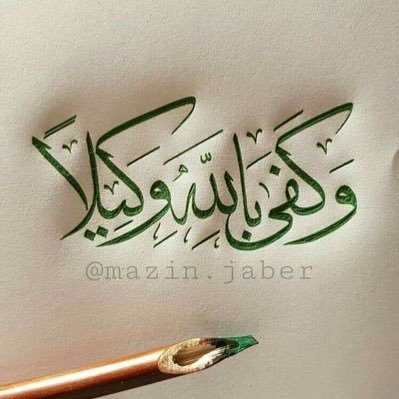 وَكَفَى بِاللَّهِ وَكِيلًا
@mazin.jaber